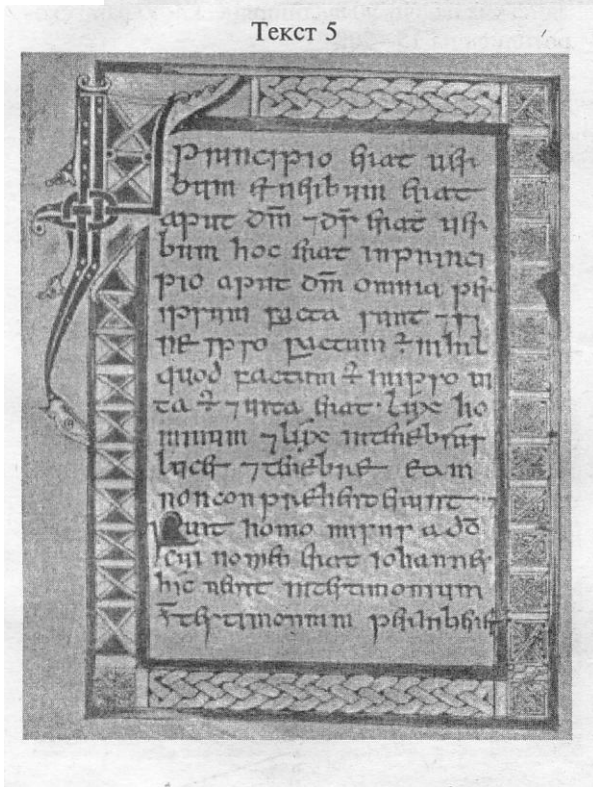 Текст 5
In principio erat uer
bum et uerbum erat
aput dm̄ ⁊ ds̄ erat uer
bum hoc erat inprinci
pio aput dm̄ omnia per
ipsum facta sunt ⁊ si
ne ipso factum ÷ nihil
quod factum ÷ inipso ui
ta ÷ ⁊ uita erat · lux ho
minum ⁊ lux intenebris
lucet ⁊ tenebre eam
nonconprehenderunt
Fuit homo misus ado̅
cui nomen erat iohannes
hic uenit intestimonium
testimonium